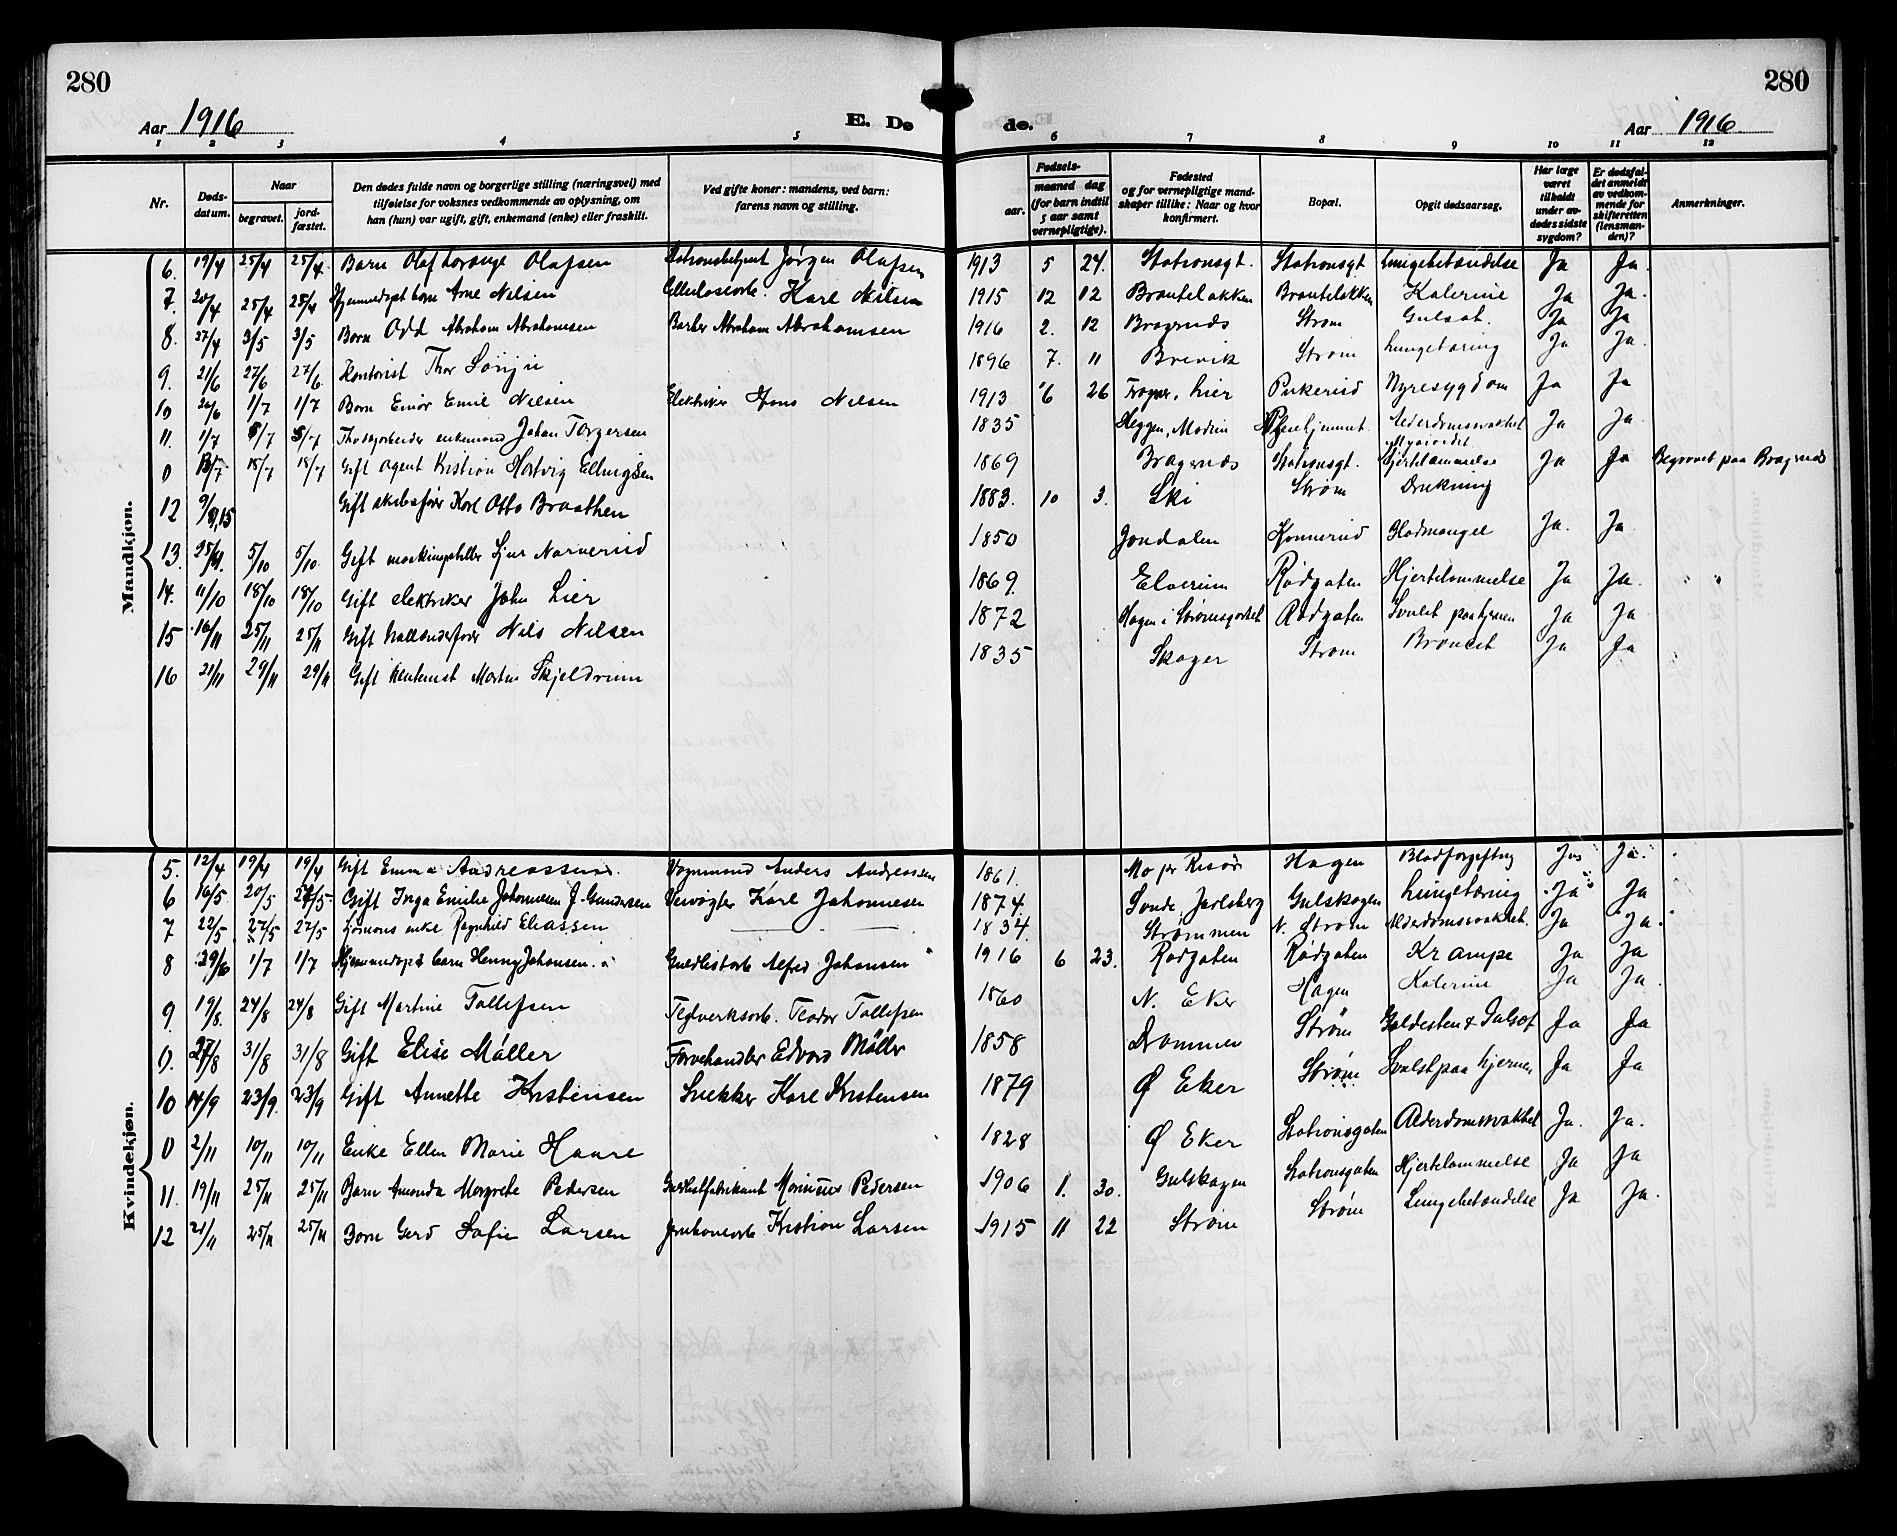 280
280
Aar 1916
E. Dø
de.
Aar 1916
1 2 3 4 5 6 7 8 9 10 11 12
Nr.
Døds-
datum.
Naar
begravet.
jord-
fæstet.
Den dødes fulde navn og borgerlige stilling (næringsvei) med
tilføielse for voksnes vedkommende av oplysning, om
han (hun) var ugift, gift, enkemand (enke) eller fraskilt.
Ved gifte koner: mandens, ved barn:
farens navn og stilling.
Fødsels-
aar.
maaned dag
(for barn indtil
5 aar samt
vernepligtige).
Fødested
og for vernepligtige mand-
skaper tillike: Naar og hvor
konfirmert.
Bopæl.
Opgit dødsaarsag.
Har læge
været
tilkaldt
under av-
dødes sidste
sygdom?
Er dødsfal-
det anmeldt
av vedkom-
mende for
skifteretten
(lensman-
den)?
Anmerkninger.
Mandkjøn.
6. 19/4 25/4 25/4 Barn Olaf Lorange Olafsen Stationsbetjent Jørgen Olafsen 1913 5 24. Stationsgt. Stationsgt. Lungebetændelse Ja Ja.
7. 20/4 25/4 25/4 Hjemmedøpt barn Arne Nilsen Cellulosearb. Karl Nilsen 1915 12 12 Branteløkken Branteløkken Katerine Ja Ja.
8. 27/4 3/5 3/5 Barn Odd Abraham Abrahamsen Barber Abraham Abrahamsen 1916 2. 12 Bragenæs Strøm Gulsot. Ja Ja
9. 21/6 27/6 27/6 Kontorist Thor 1896 7. 11 Brevik Strøm Lungetæring Ja Ja.
10 26/6 1/7 1/7 Barn Einar Emil Nilsen Elektriker Hans Nilsen 1913 6 26 Frogner, Lier Pukerud Nyresygdom Ja Ja
11. 1/7 5/7 5/7 enkemand Johan Torgersen 1835 Heggen, Modum Plejehjemmet Alderdomssvakhet Ja Ja.
0 13/7 18/7 18/7 Gift agent Kristian Hartvig Ellingsen 1869 Bragenæs Stationsgt. Hjertelammelse Ja Ja Begravet paa Bragenæs
12 9/9,15 Gift skibsfører Karl Otto Braathen 1883. 10 3. Ski Strøm Drukning
13. 25/9. 5/10 5/10 Gift maskinopstiller Narverud 1850 Jondalen Konnerud Blodmangel Ja. Ja.
14. 11/10 18/10 18/10 Gift elektriker John Lier 1869. Elverum Rødgaten Hjertelammelse Ja Ja. " "
15 16/11 25/11 25/11 Gift Nils Nilsen 1872 Hagen i Strømsgodset Rødgaten Svulst paa hjernen Ja Ja
16 21/11 29/11 29/11 Gift Morten Skjeldrum 1835 Skoger Strøm Ja Ja
Kvindekjøn.
5. 12/4 19/4 19/4 Gift Emma Andreassen. Vognmand Anders Andreassen 1861. Mo pr Risør Hagen Blodforgiftng Ja Ja.
6 16/5 20/5 27/5 Gift Inga Emilie Johannesen f. Gundersen Veivogter Karl Johannesen 1874. Sande Jarlsberg Gulskogen Lungetæring Ja Ja
7 22/5 27/5 27/5 Sjømans enke Ragnhild Eliassen — 1834. Strømmen N. Strøm Alderdomssvakhet. Ja Ja.
8 29/6 1/7 1/7 Hjemmedøpt barn Henny Johansen. Guldlistarb. Alfred Johansen 1916 6 23. Rødgaten Rødgaten Krampe Ja Ja
9. 19/8. 24/8 24/8 Gift Martine Tollefsen Teglverksarb. Teodor Tollefsen 1860 N. Eker Hagen Katerine Ja Ja.
0. 27/8 31/8 31/8 Gift Elise Møller Farvehandler Edvard Møller 1858 Drammen Strøm Galdesten & Gulsot Ja Ja
10 14/9 23/9. 23/9 Gift Annette Kristensen Snekker Karl Kristensen 1879 Ø Eker Strøm Svulst paa hjernen Ja Ja
0 2/11 10/11 10/11 Enke Ellen Marie Haare 1828 Ø Eker Stationsgaten Alderdomssvakhet Ja. Ja.
11. 19/11 25/11 25/11 Barn Amunda Margrete Pedersen Guldlistfabrikant Marinius Pedersen 1906 1. 30. Gulskogen Stationsgaten Hjertelammelse Ja Ja
12 21/11 25/11 25/11 Barn Gerd Sofie Larsen Jernbanearb. Kristian Larsen 1915 11 22 Strøm Strøm Lungebetændelse Ja Ja.